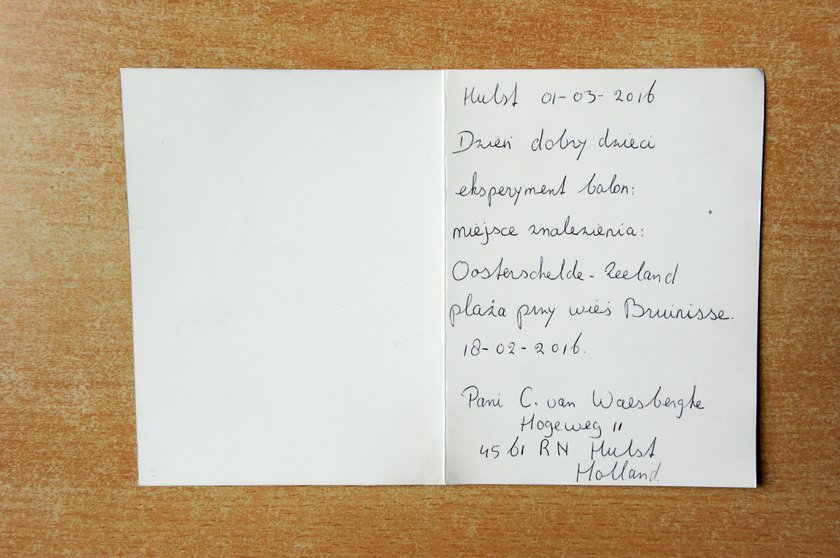 Hulst 01-03-2016
Dzień dobry dzieci
eksperyment balon:
miejsce znalezienia:
Oosterschelde - Zeeland
plaża przy wieś Bruinisse.
18-02-2016.
Pani C. van Waesberghe
Hogeweg 11
4561 RN Hulst
Holland.